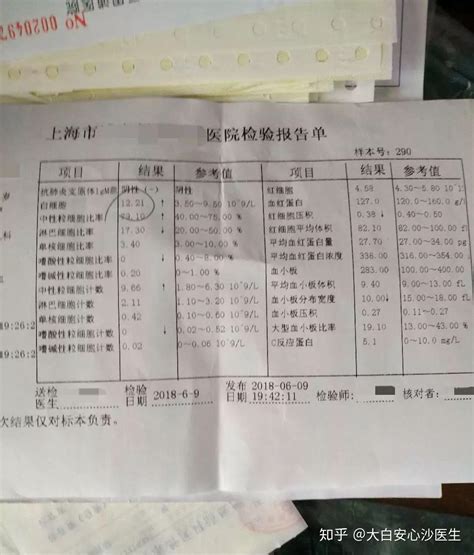 No 002049
上海市 医院检验报告单
样本号: 290
项目 结果 参考值 项目 结果 参考值
抗肺炎支原体IgM 阴性(-) 阴性 红细胞 4.58 4.30~5.80 10^
白细胞 12.21 ↑ 3.50~9.50 10^9/L 血红蛋白 127.0 130.0~160.0 g/
中性粒细胞比率 ↑ 40.00~75.00 % 红细胞压积 0.38 ↓ 0.40~0.50
淋巴细胞比率 17.30 ↓ 20.00~50.00 % 红细胞平均体积 82.10 82.00~100.00 fl
单核细胞比率 3.40 3.00~10.00 % 平均血红蛋白量 27.70 27.00~34.00 pg
嗜酸性粒细胞比率 0 ↓ 0.40~8.00 % 平均血红蛋白浓度 336.00 316.00~354.00
嗜碱性粒细胞比率 0.20 0~1.00 % 血小板 283.00 100.00~400.00
中性粒细胞计数 9.66 ↑ 1.80~6.30 10^9/L 平均血小板体积 9.40 9.00~13.00 fL
淋巴细胞计数 2.11 1.10~3.20 10^9/L 血小板分布宽度 10.00 ↓ 15.00~18.00 fL
单核细胞计数 0.42 0.10~0.60 10^9/L 血小板压积 0.27 0.11~0.27
嗜酸性粒细胞计数 0 ↓ 0.02~0.52 10^9/L 大型血小板比率 19.10 13.00~43.00 %
嗜碱性粒细胞计数 0.02 0~0.06 10^9/L C反应蛋白 5.1 0~10.0 mg/L
19:26:2
19:26:2
送检医生 检验日期 2018-6-9 发布日期 2018-06-09 19:42:11 检验师: 核对者:
次结果仅对标本负责。
知乎 @大白安心沙医生